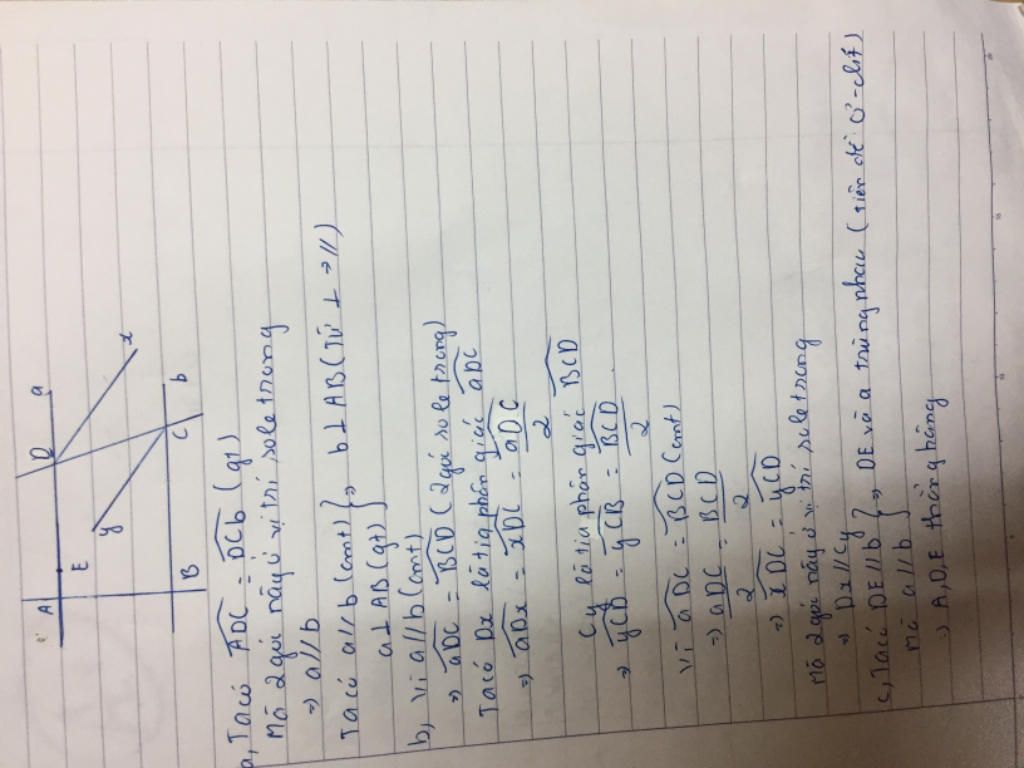 A
E
D
a
y
x
B
C
b
a, Ta có ADC = DCb (gt)
Mà 2 góc này ở vị trí sole trong
⇒ a//b
Ta có a//b (cmt) } ⇒ b ⊥ AB (Từ ⊥ → //)
a ⊥ AB (gt)
b, Vì a//b (cmt)
⇒ aDC = BCD (2 góc so le trong)
Ta có Dx là tia phân giác aDC
⇒ aDx = xDC = aDC / 2
Cy là tia phân giác BCD
⇒ yCD = yCB = BCD / 2
Vì aDC = BCD (cmt)
⇒ aDC / 2 = BCD / 2
⇒ xDC = yCD
Mà 2 góc này ở vị trí sole trong
⇒ Dx // Cy
c, Ta có DE // b } ⇒ DE và a trùng nhau (tiên đề Ơ-clit)
Mà a // b
⇒ A, D, E thẳng hàng